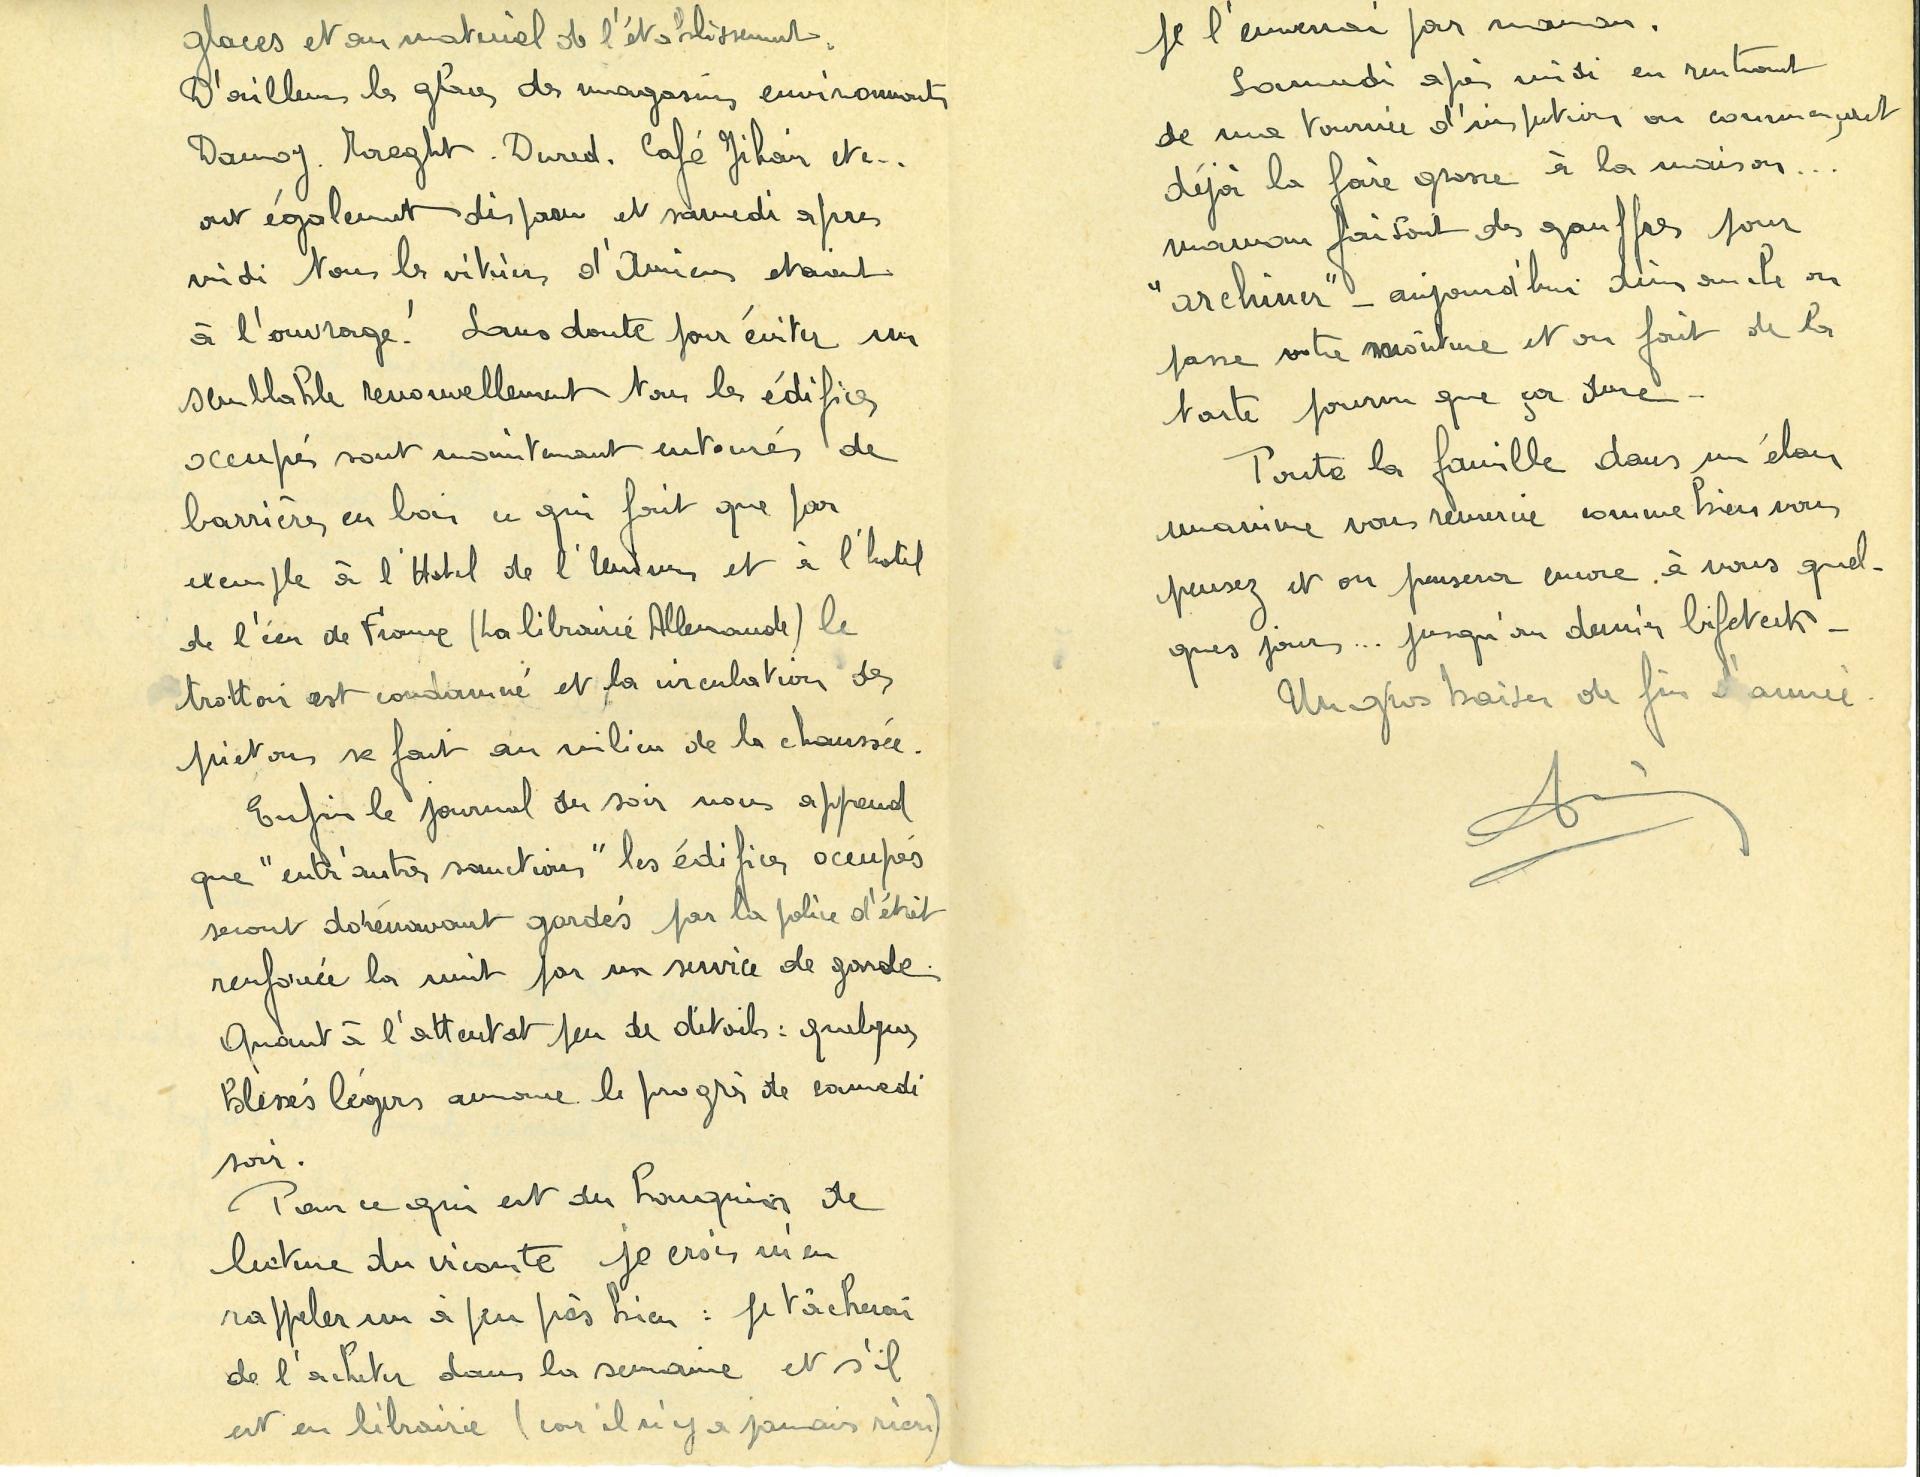 glaces et au matériel de l'établissement.
D'ailleurs les glaces des magasins environnants
Damoy. . Dured. Café Jihan etc..
ont également disparu et samedi apres
midi tous les vitriers d'Amiens etaient
à l'ouvrage! Sans doute pour éviter un
semblable renouvellement tous les édifices
occupés sont maintenant entourés de
barrières en bois ce qui fait que par
exemple à l'Hotel de l'Univers et à l'hotel
de l'écu de France (La librairie Allemande) le
trottoir est condamné et la circulation des
piétons se fait au milieu de la chaussée.
Enfin le journal du soir nous apprend
que "entr'autres sanctions" les édifices occupés
seront dorénavant gardés par la police d'état
renforcée la nuit par un service de garde.
Quant à l'attentat peu de détails : quelques
blessés légers annonce le progrès de samedi
soir.
Pour ce qui est du bouquin de
lecture du vicomte je crois m'en
rappeler un à peu près bien : je tâcherai
de l'acheter dans la semaine et s'il
est en librairie (car il n'y a jamais rien)
je l'enverrai par maman.
Samedi après midi en rentrant
de ma tournée d'inspection on commençait
déjà la faire grosse à la maison...
maman faisait des gauffres pour
"archiner" _ aujourd'hui dimanche on
passe votre mouture et on fait de la
tarte pourvu que ça dure _
Toute la famille dans un élan
unanime vous remercie comme bien vous
pensez et on pensera encore à vous quel-
ques jours... jusqu'au dernier bifsteck _
Un gros baiser de fin d'année.